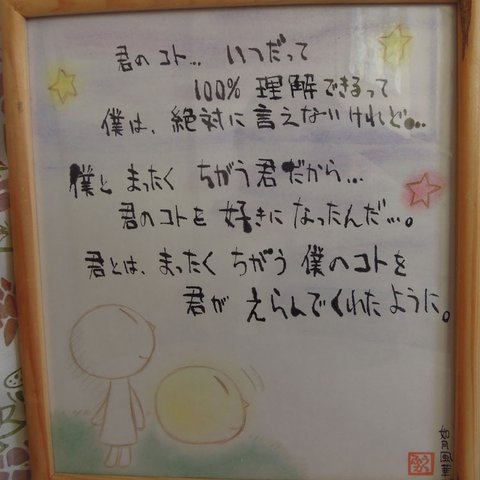 君のコト… いつだって
100% 理解できるって
僕は、絶対に言えないけれど…
僕と まったく ちがう君だから…
君のコトを 好きになったんだ…。
君とは、まったく ちがう 僕のコトを
君が えらんでくれたように。
如月風華